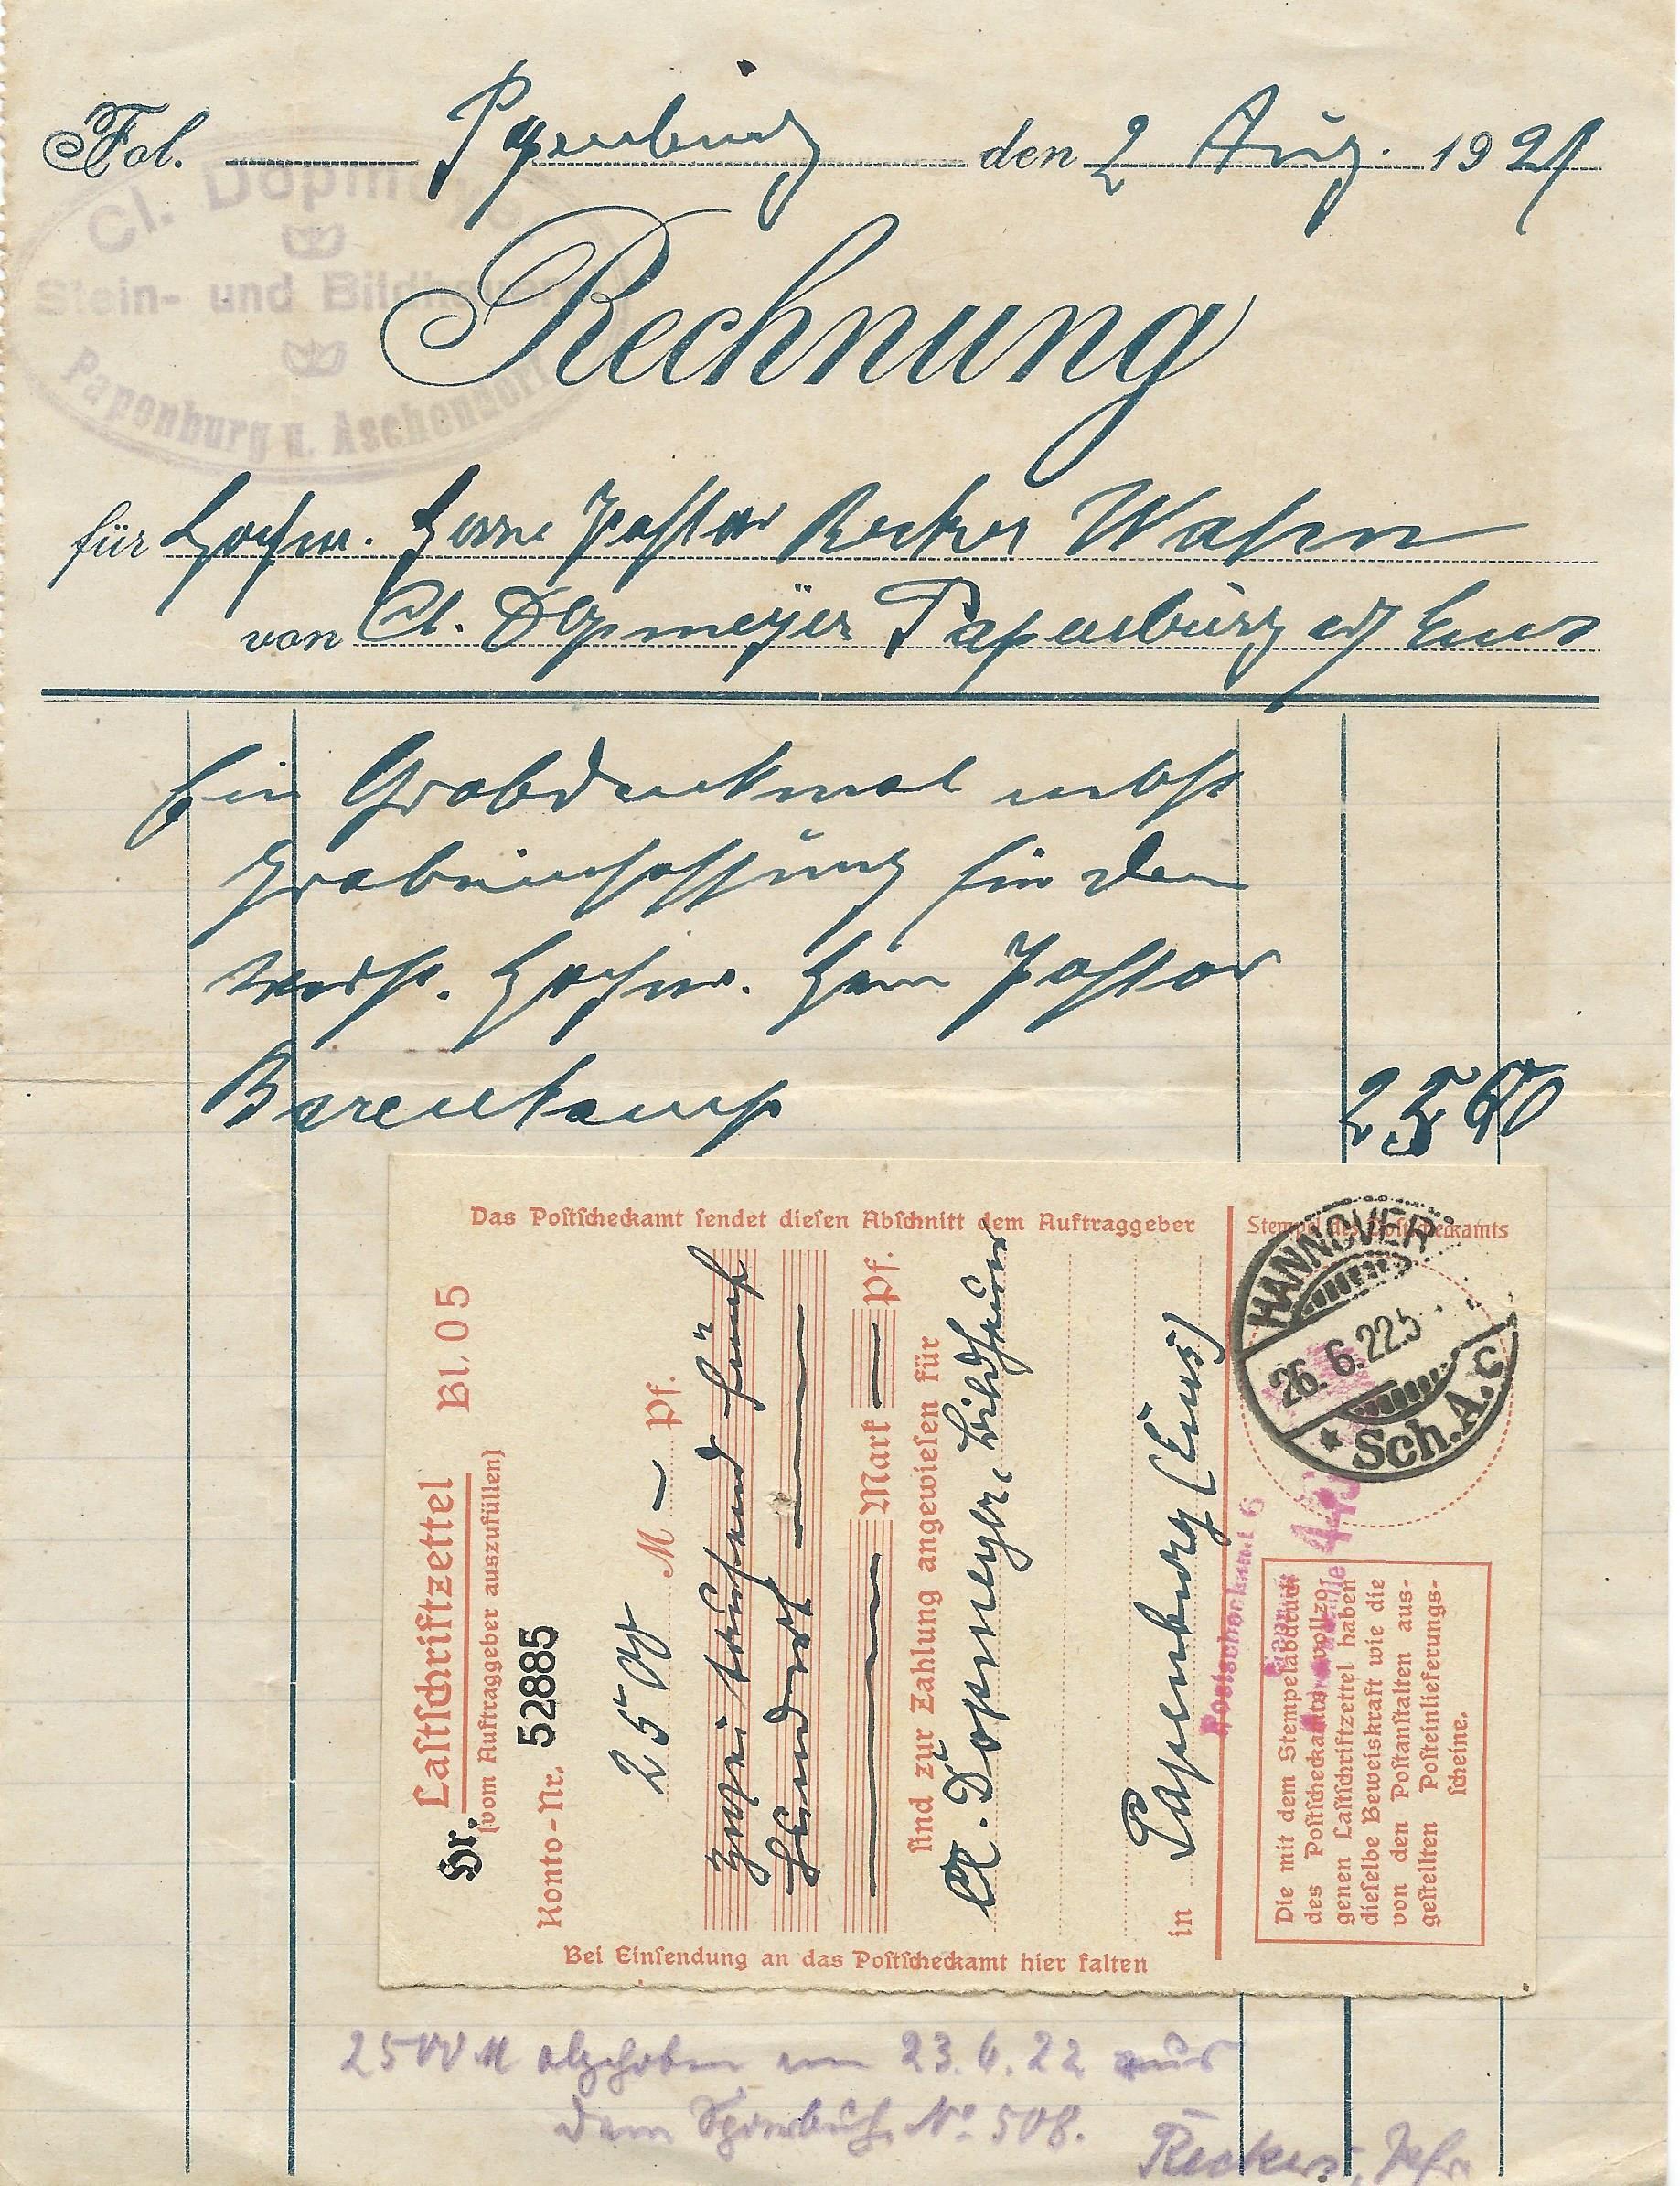 Fol. Papenburg den 2 Aug. 1921
Cl. Dopmeyer
Stein- und Bildhauerei
Papenburg u. Aschendorf
Rechnung
für Hochw. Herrn Pastor Reckers Wahn
von Cl. Dopmeÿer Papenburg a/ Ems
Ein Grabdenkmal nebst
Grabeinfassung für den
verst. Hochw. Herrn Pastor
Barenkamp 2500
Das Postscheckamt sendet diesen Abschnitt dem Auftraggeber
Hr. Lastschriftzettel Bl. 05
(vom Auftraggeber auszufüllen)
Konto-Nr. 52885
2500 M — Pf.
Zweitausend fünf
hundert
Mark — Pf.
sind zur Zahlung angewiesen für
Cl. Dopmeyer, Bildhauer
in Papenburg (Ems)
Bei Einsendung an das Postscheckamt hier falten
Stempel des Postscheckamts
HANNOVER
26. 6. 22.5
* Sch.A. c
Postscheckamt 6
Die mit dem Stempelabdruck
des Postscheckamts vollzo-
genen Lastschriftzettel haben
dieselbe Beweiskraft wie die
von den Postanstalten aus-
gestellten Posteinlieferungs-
scheine.
2500 M abgehoben am 23.6.22 aus
dem Sparbuch No 508.
Reckers, Pfr.